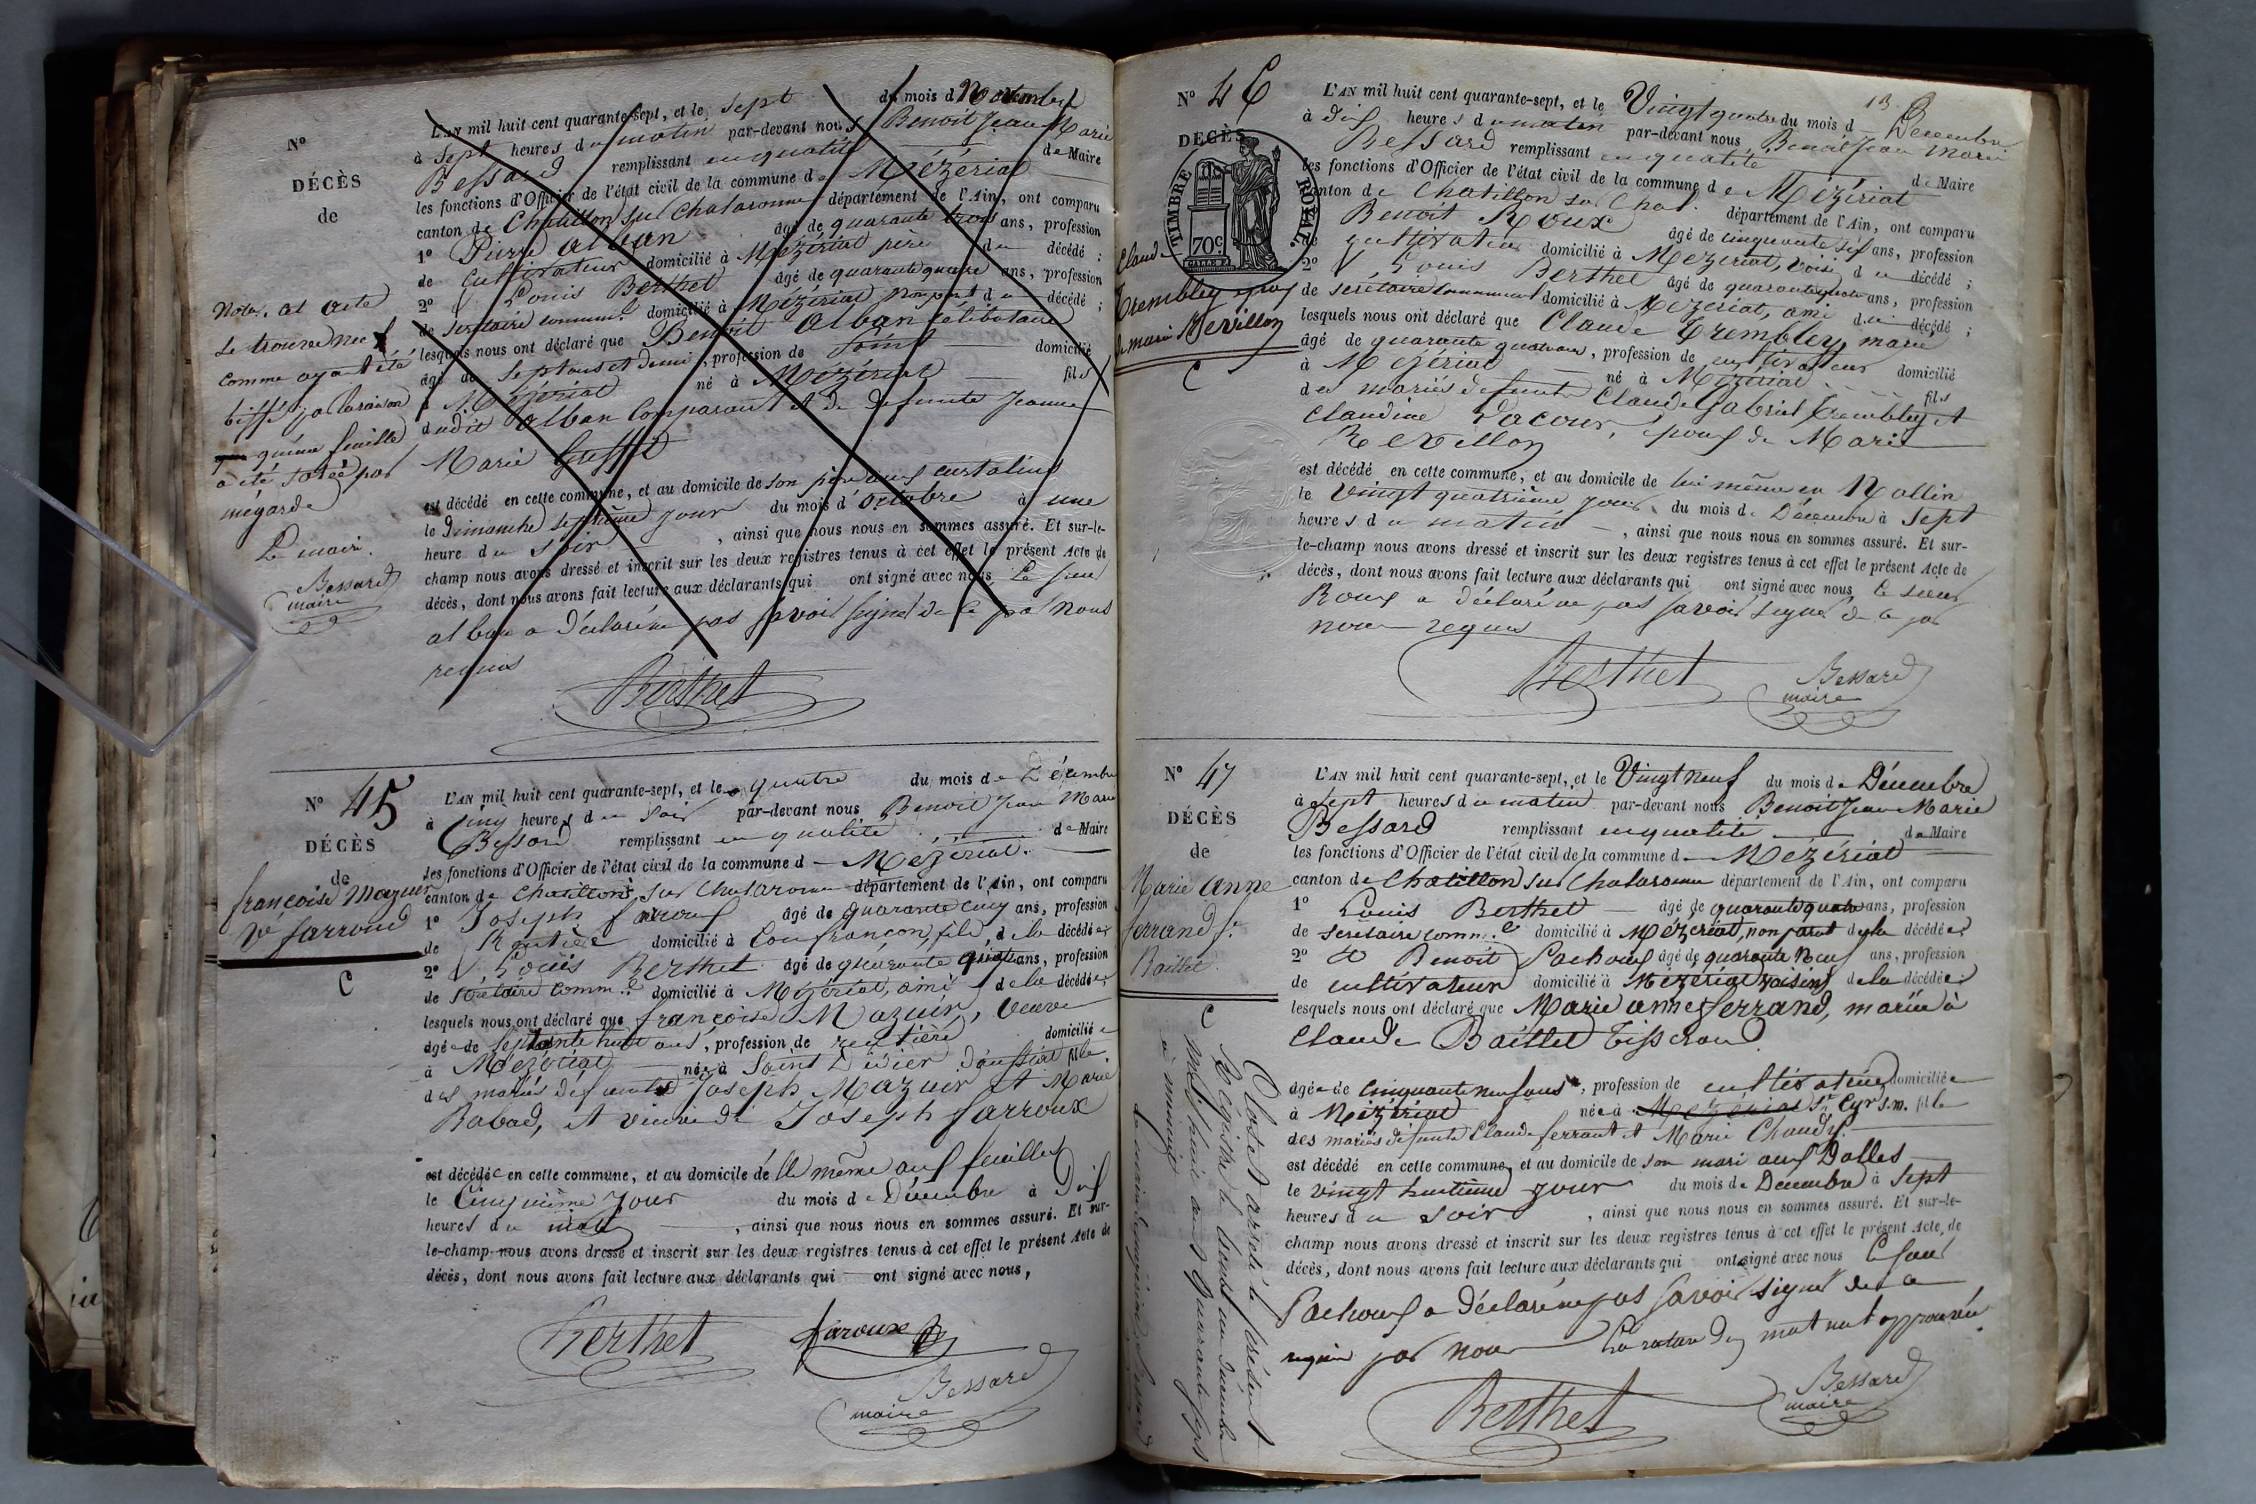 N°
DÉCÈS
de
Nota. cet acte
se trouve
comme ayant été
biffé par la raison
qu'une feuille
a été sautée par
mégarde
Le maire.
Bessard
maire
L'AN mil huit cent quarante-sept, et le sept du mois d Novembre
à sept heures du matin par-devant nous Benoit Jean Marie
Bessard remplissant en qualité de Maire
les fonctions d'Officier de l'état civil de la commune de Mézériat
canton de Chatillon sur Chalaronne département de l'Ain, ont comparu
1° Pierre alban âgé de quarante trois ans, profession
de cultivateur domicilié à Mézériat père du décédé ;
2° Louis Berthet âgé de quarante quatre ans, profession
de secrétaire commun.l domicilié à Mézériat non parent du décédé ;
lesquels nous ont déclaré que Benoit alban célibataire
âgé de sept ans et demi, profession de domicilié
à Mézériat né à Mézériat fils
dudit alban comparant et de defunte Jeanne
Marie
est décédé en cette commune, et au domicile de son père aux
le dimanche septième jour du mois d'octobre à une
heure du soir, ainsi que nous nous en sommes assuré. Et sur-le-
champ nous avons dressé et inscrit sur les deux registres tenus à cet effet le présent Acte de
décès, dont nous avons fait lecture aux déclarants qui ont signé avec nous, Le sieur
alban a déclaré ne pas savoir signer de ce par nous
requis
Berthet
N° 45
DÉCÈS
de
françoise Mazuir
Ve farroud
C
L'AN mil huit cent quarante-sept, et le quatre du mois de Décembre
à cinq heures du soir par-devant nous Benoit Jean Marie
Bessard remplissant en qualité de Maire
les fonctions d'Officier de l'état civil de la commune d Mézériat.
canton de Chatillon sur Chalaronne département de l'Ain, ont comparu
1° Joseph farroux âgé de quarante cinq ans, profession
de Rentier domicilié à Confrançon, fils de la décédée
2° Louis Berthet âgé de quarante quatre ans, profession
de secrétaire comm.l domicilié à Mézériat, ami de la décédée
lesquels nous ont déclaré que françoise Mazuir, veuve
âgée de septante huit ans, profession de rentière domiciliée
à Mézériat née à Saint Didier d'aussiat fille
des mariés defunts Joseph Mazuir et Marie
Rabad, et veuve de Joseph farroux
est décédée en cette commune, et au domicile d'elle même aux feuilles
le Cinquième jour du mois de Décembre à Dix
heures du matin, ainsi que nous nous en sommes assuré. Et sur-
le-champ nous avons dressé et inscrit sur les deux registres tenus à cet effet le présent Acte de
décès, dont nous avons fait lecture aux déclarants qui ont signé avec nous,
Berthet faroux
Bessard
maire
N° 46
DECÈS
TIMBRE ROYAL.
70c
Claude
Trembley epoux
de marie Revillon
C
13
L'AN mil huit cent quarante-sept, et le Vingt quatre du mois d Decembre
à dix heures du matin par-devant nous Benoit Jean Marie
Bessard remplissant en qualité de Maire
les fonctions d'Officier de l'état civil de la commune de Mézériat
canton de Chatillon sur Chal. département de l'Ain, ont comparu
Benoit Roux âgé de cinquante six ans, profession
de cultivateur domicilié à Mézériat, voisin du décédé ;
2° Louis Berthet âgé de quarante quatre ans, profession
de secrétaire communal domicilié à Mézériat, ami du décédé ;
lesquels nous ont déclaré que Claude Trembley, marié
âgé de quarante quatre ans, profession de cultivateur domicilié
à Mézériat né à Mézériat fils
des mariés defunts Claude Gabriel Trembley et
Claudine Lacour, époux de Marie
Revillon
est décédé en cette commune, et au domicile de lui même en Mollin
le vingt quatrième jour du mois de Décembre à sept
heures du matin, ainsi que nous nous en sommes assuré. Et sur-
le-champ nous avons dressé et inscrit sur les deux registres tenus à cet effet le présent Acte de
décès, dont nous avons fait lecture aux déclarants qui ont signé avec nous le sieur
Roux a déclaré ne pas savoir signer de ce par
nous requis
Berthet
Bessard
maire
N° 47
DÉCÈS
de
Marie anne
ferrand fe
Baillet
C
Clos et arrêté le présent
Régistre le trente un décembre
Mil huit cent quarante sept
à minuit
Le maire de Mézériat Bessard
L'AN mil huit cent quarante-sept, et le Vingt neuf du mois de Décembre
à sept heures du matin par-devant nous Benoit Jean Marie
Bessard remplissant en qualité de Maire
les fonctions d'Officier de l'état civil de la commune d Mézériat
canton de Chatillon sur Chalaronne département de l'Ain, ont comparu
1° Louis Berthet âgé de quarante quatre ans, profession
de secrétaire comm.l domicilié à Mézériat, non parent de la décédée
2° Benoit Pachoux âgé de quarante neuf ans, profession
de cultivateur domicilié à Mézériat voisin de la décédée
lesquels nous ont déclaré que Marie anne ferrand, mariée à
Claude Baillet Tisserand
âgée de cinquante neuf ans, profession de cultivatrice domiciliée
à Mézériat née à Mézériat St Cyr s. m. fille
des mariés défunts Claude ferrand et Marie Chaudy.
est décédé en cette commune, et au domicile de son mari aux Dalles
le vingt huitième jour du mois de Decembre à sept
heures du soir, ainsi que nous nous en sommes assuré. Et sur-le-
champ nous avons dressé et inscrit sur les deux registres tenus à cet effet le présent Acte, de
décès, dont nous avons fait lecture aux déclarants qui ont signé avec nous le sieur
Pachoux a déclaré ne pas savoir signer de ce
requis par nous La rature du mot nul approuvée
Berthet
Bessard
maire